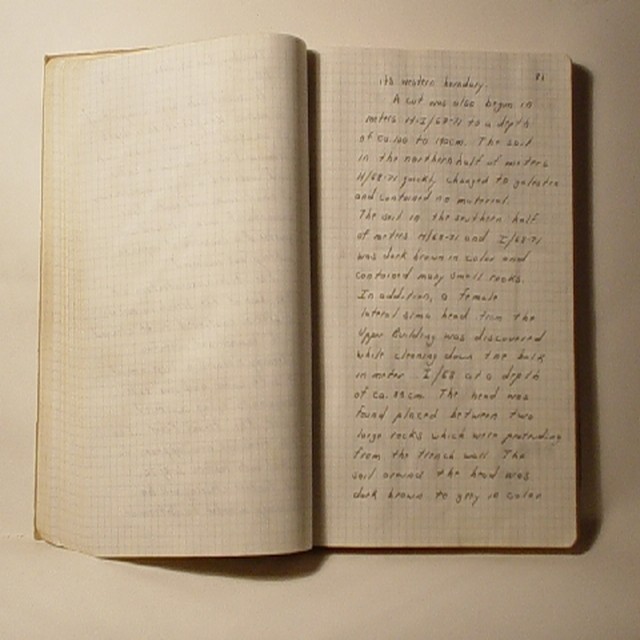 81
its western boundary.
A cut was also begun in
meters H-I/68-71 to a depth
of ca. 100 to 190cm. The soil
in the northern half of meters
H/68-71 quickly changed to galestro
and contained no material.
The soil in the southern half
of meters H/68-71 and I/68-71
was dark brown in color and
contained many small rocks.
In addition, a female
lateral sima head from the
Upper Building was discovered
while cleaning down the balk
in meter I/68 at a depth
of ca. 85cm. The head was
found placed between two
large rocks which were protruding
from the trench wall. The
soil around the head was
dark brown to grey in color